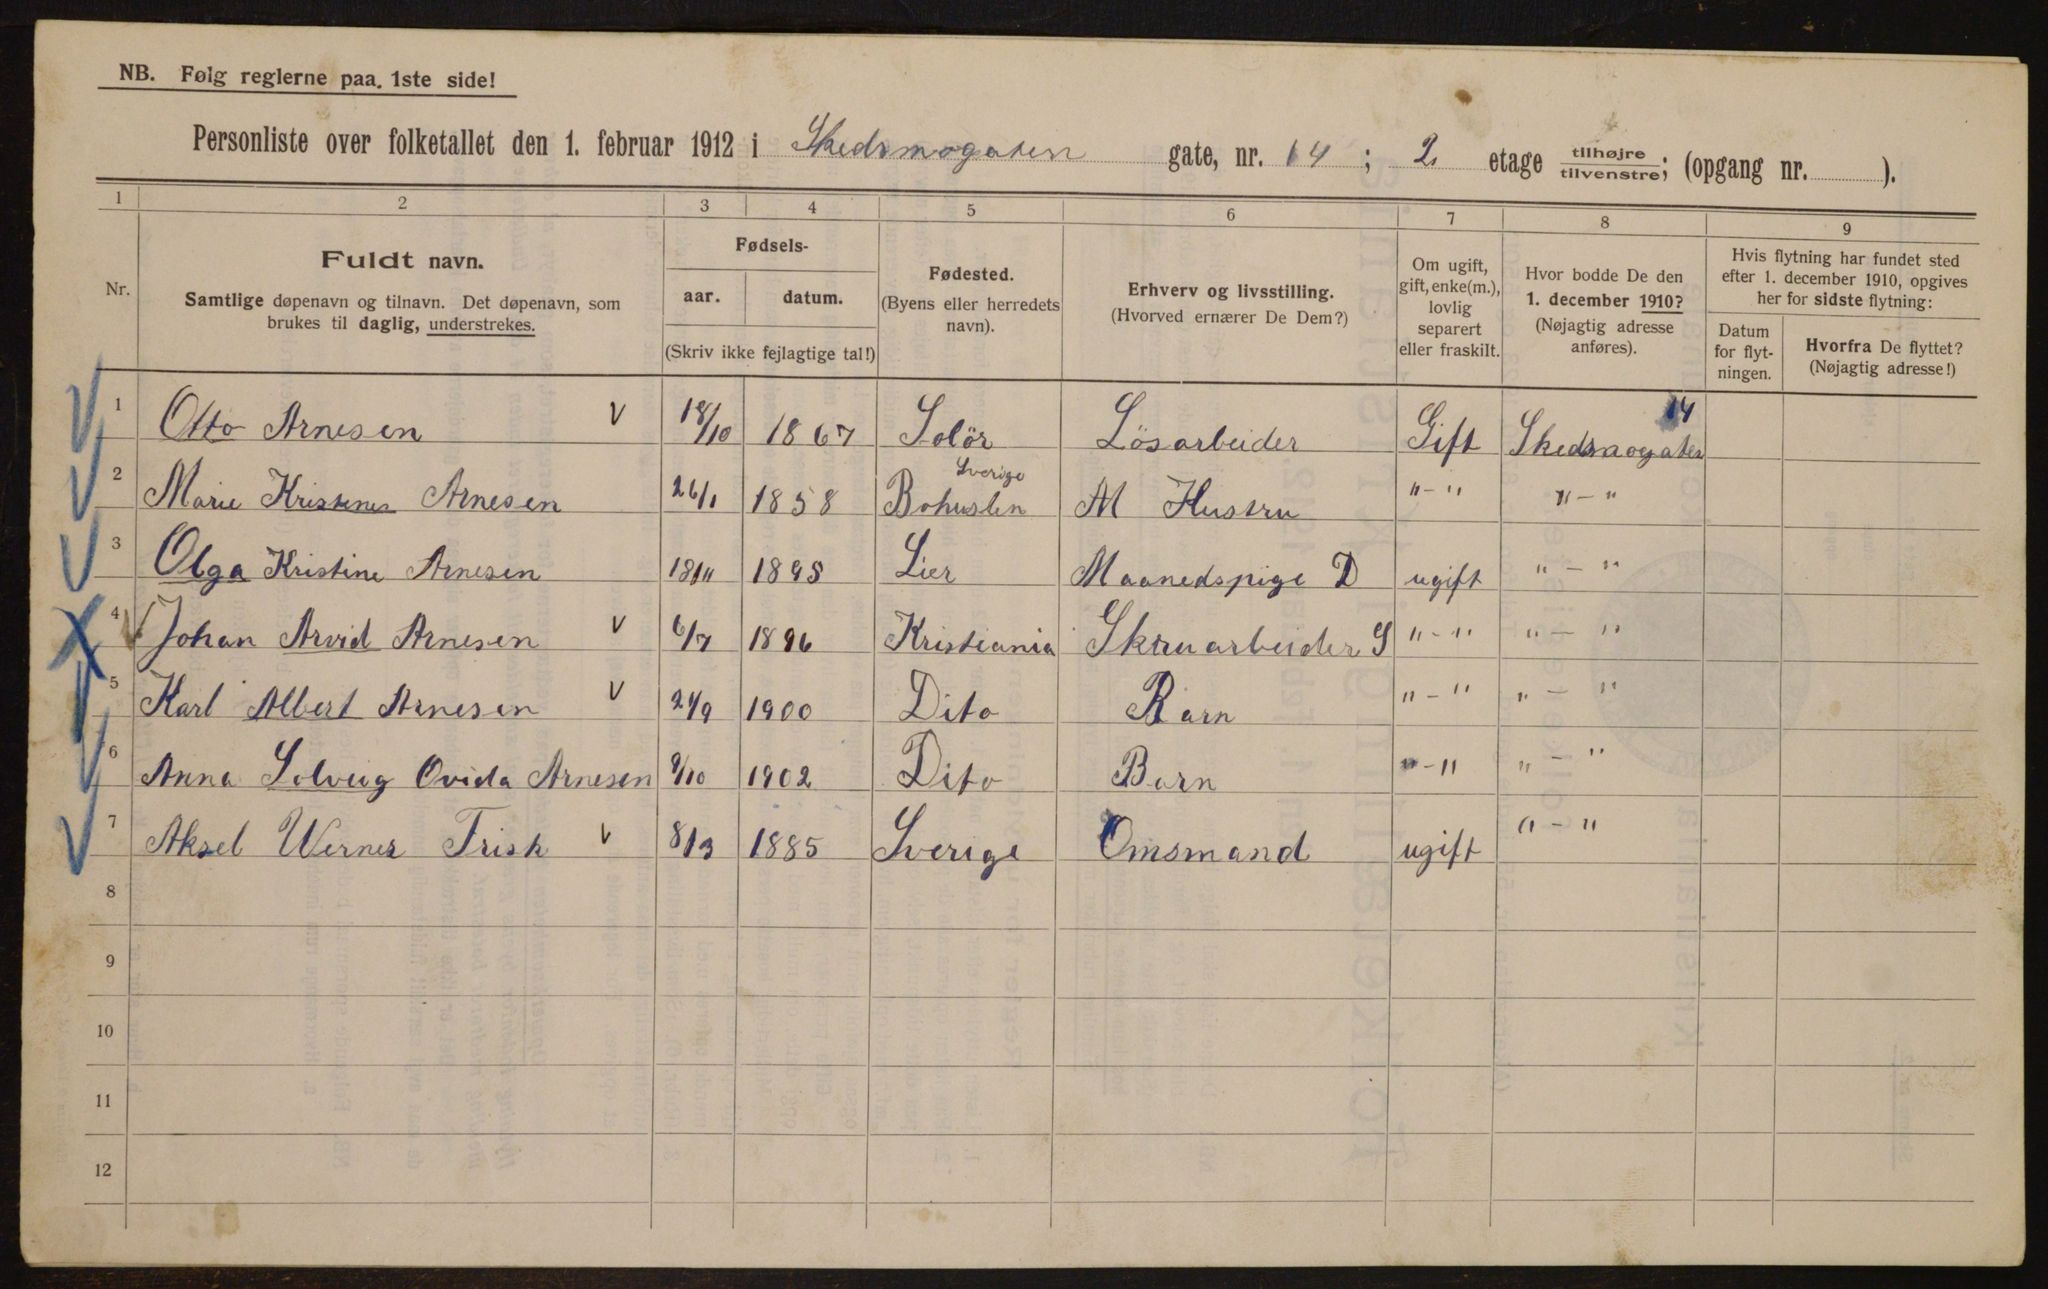 NB. Følg reglerne paa. 1ste side!
Personliste over folketallet den 1. februar 1912 i Skedsmogaten gate, nr. 14; 2. etage tilhøjre tilvenstre; (opgang nr. ).
1 2 3 4 5 6 7 8 9
Nr.
Fuldt navn.
Samtlige døpenavn og tilnavn. Det døpenavn, som
brukes til daglig, understrekes.
Fødsels-
aar. datum.
(Skriv ikke fejlagtige tal!)
Fødested.
(Byens eller herredets
navn).
Erhverv og livsstilling.
(Hvorved ernærer De Dem?)
Om ugift,
gift, enke(m.),
lovlig
separert
eller fraskilt.
Hvor bodde De den
1. december 1910?
(Nøjagtig adresse
anføres).
Hvis flytning har fundet sted
efter 1. december 1910, opgives
her for sidste flytning:
Datum
for flyt-
ningen.
Hvorfra De flyttet?
(Nøjagtig adresse!)
1 Otto Arnesen V 18/10 1867 Solör Lösarbeider Gift Skedsmogaten 14
2 Marie Kristines Arnesen 26/1 1858 Sverige Bohuslen M Hustru " - " " - "
3 Olga Kristine Arnesen 18/11 1895 Lier Maanedspige D ugift " - "
4 Johan Arvid Arnesen V 6/7 1896 Kristiania Skruarbeider S " - " " - "
5 Karl Albert Arnesen V 24/9 1900 Dito Barn " - " " - "
6 Anna Solveig Ovida Arnesen 9/10 1902 Dito Barn " - " " - "
7 Aksel Werner Frisk V 8/3 1885 Sverige Omsmand ugift " - "
8
9
10
11
12